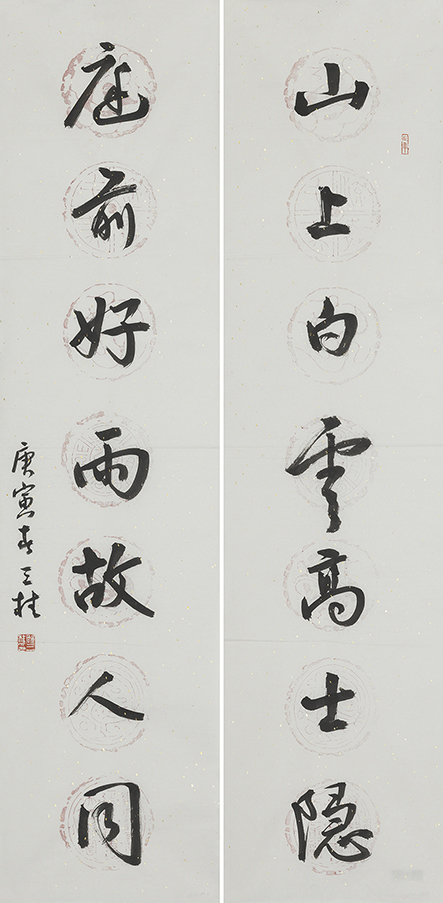 山上白雲高士隐
庭前好雨故人同
庚寅春三桂